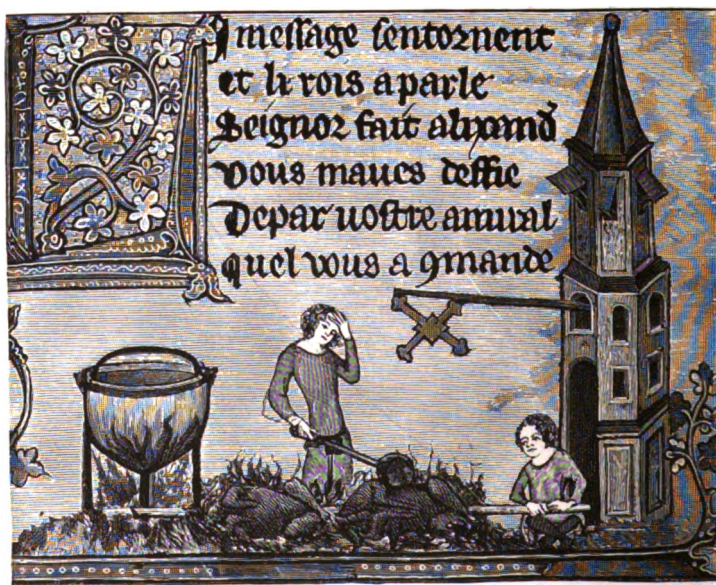 I message sentornent
et li rois aparle
Seignor fait alixand̾
vous maues deffie
Depar uostre amiral
quel vous a ꝯmande